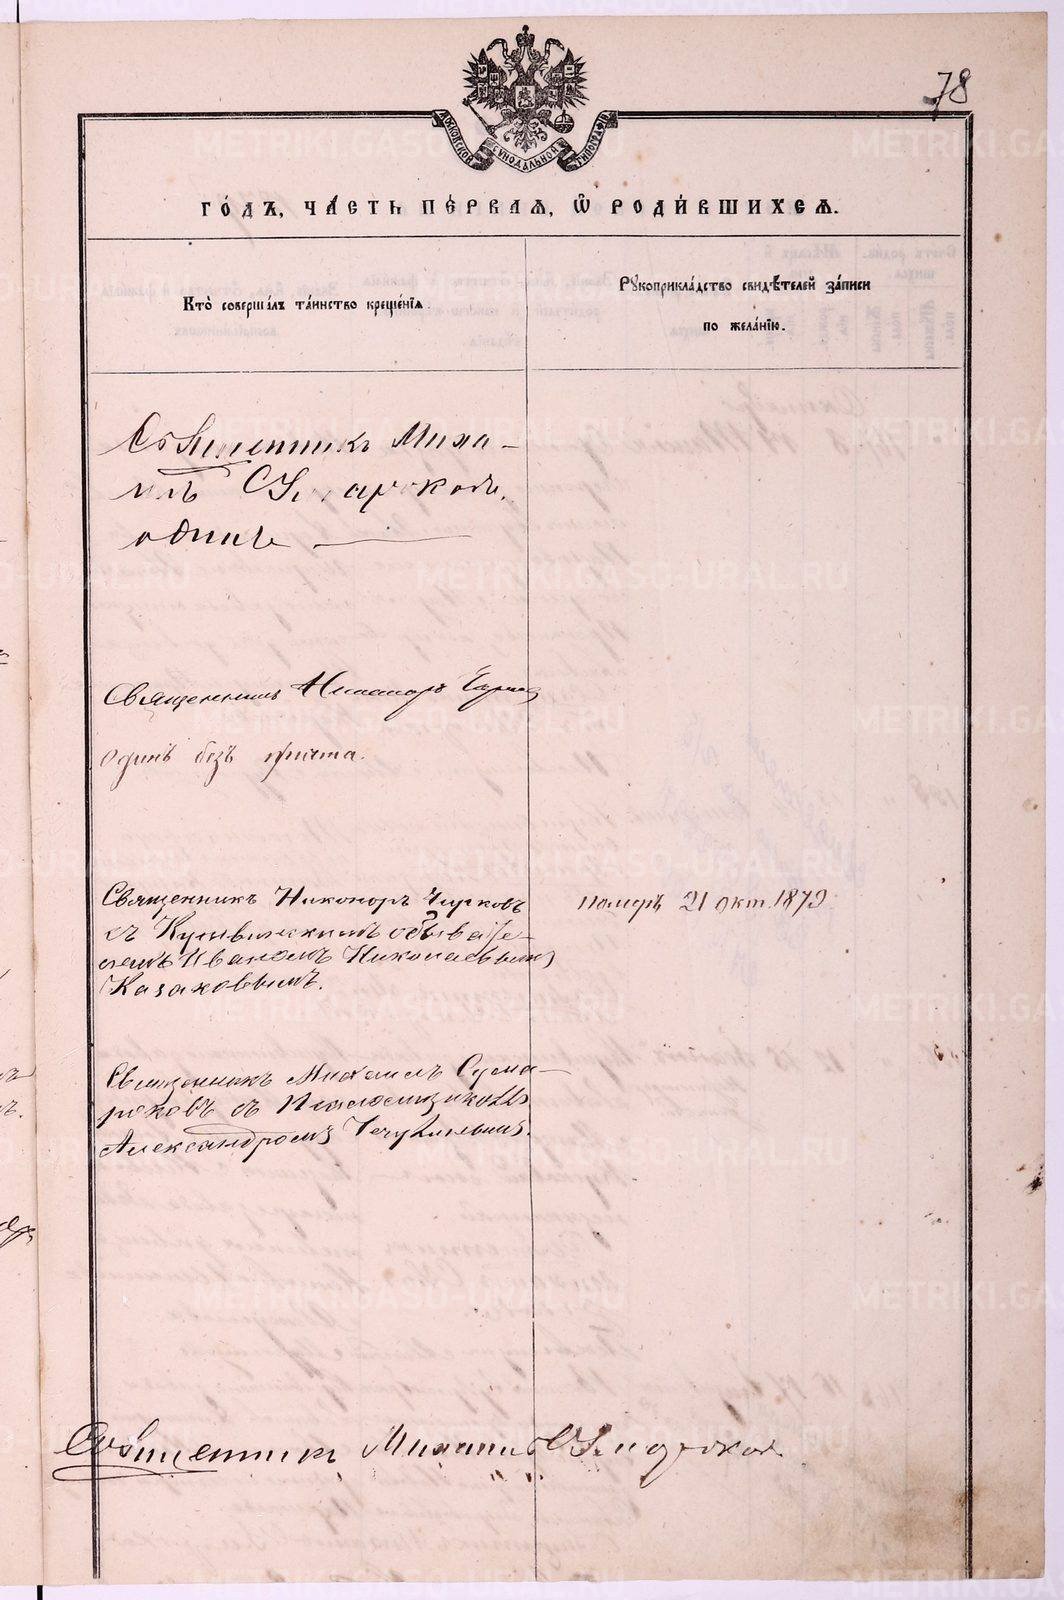 78
МОСКОВСКОЙ СѴНОДАЛЬНОЙ ТИПОГРАФІИ
ГО́ДЪ, ЧА́СТЬ ПЕ́РВАЯ, Ѡ РОДИ́ВШИХСЯ.
Кто̀ совершáлъ тáинство крещéнїя.
Рꙋкоприклáдство свидѣ́телей зáписи
по желáнїю.
Священникъ Миха-
илъ Сумароковъ,
одинъ
Священникъ Никаноръ Чирков
одинъ безъ причта.
Священникъ Никоноръ Чирковъ
съ Кушвинскимъ обывате-
лемъ Иваномъ Николаевымъ
Казаковымъ.
померъ 21 окт. 1879
Священникъ Михаилъ Сума-
роковъ съ Псаломщикомъ
Александромъ
Священникъ Михаилъ Сумароковъ
METRIKI.GASO-URAL.RU